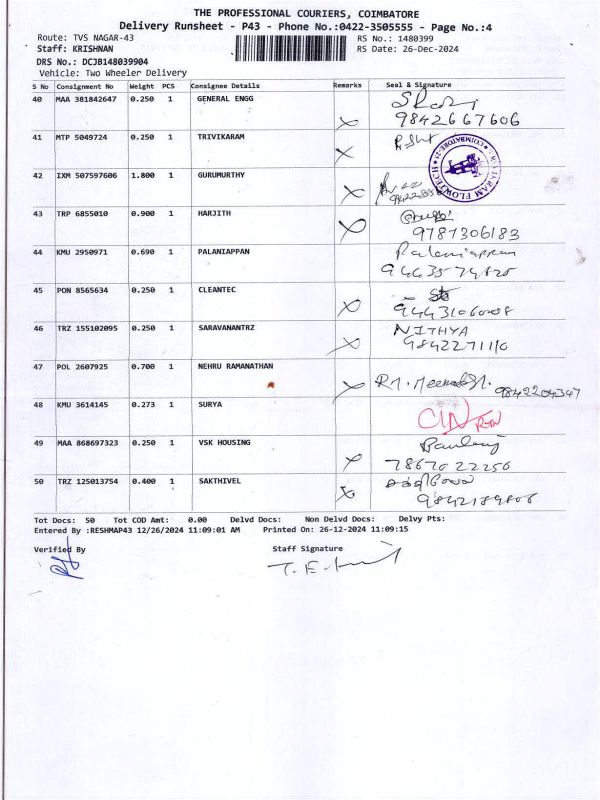 THE PROFESSIONAL COURIERS, COIMBATORE
Delivery Runsheet - P43 - Phone No.:0422-3505555 - Page No.:4
Route: TVS NAGAR-43
RS No.: 1480399
Staff: KRISHNAN
RS Date: 26-Dec-2024
DRS No.: DCJB148039904
Vehicle: Two Wheeler Delivery
S No Consignment No Weight PCS Consignee Details Remarks Seal & Signature
40 MAA 381842647 0.250 1 GENERAL ENGG
9842667606
41 MTP 5049724 0.250 1 TRIVIKARAM
42 IXM 507597606 1.800 1 GURUMURTHY
43 TRP 6855010 0.900 1 HARJITH
9787306183
44 KMU 2950971 0.690 1 PALANIAPPAN Palaniappan
45 PON 8565634 0.250 1 CLEANTEC
46 TRZ 155102095 0.250 1 SARAVANANTRZ NITHYA
9842271110
47 POL 2607925 0.700 1 NEHRU RAMANATHAN
9842204347
48 KMU 3614145 0.273 1 SURYA
49 MAA 868697323 0.250 1 VSK HOUSING
7867022256
50 TRZ 125013754 0.400 1 SAKTHIVEL
Tot Docs: 50 Tot COD Amt: 0.00 Delvd Docs: Non Delvd Docs: Delvy Pts:
Entered By :RESHMAP43 12/26/2024 11:09:01 AM Printed On: 26-12-2024 11:09:15
Verified By Staff Signature